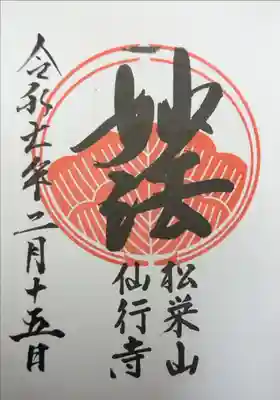 妙法
松栄山
仙行寺
令和七年二月十五日